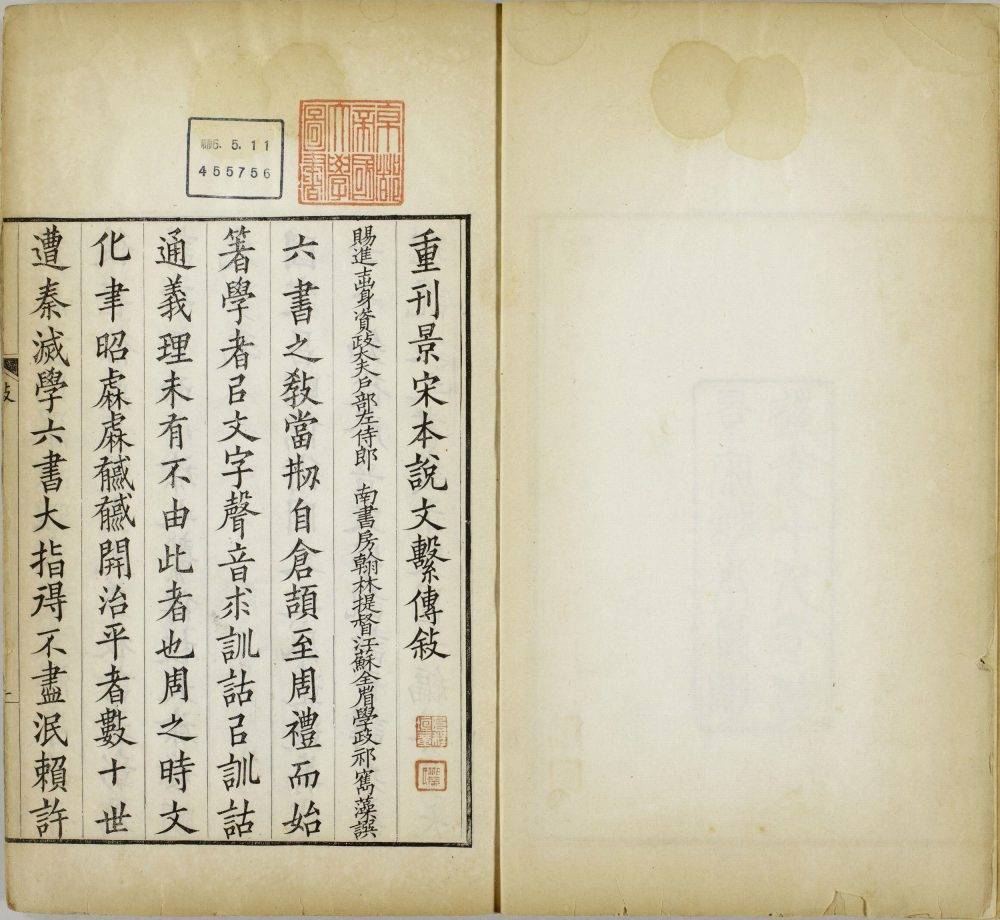 重刊景宋本說文繫傳敍
賜進士出身資政大夫戶部左侍郎 南書房翰林提督江蘇全省學政祁寯藻譔
六書之敎當刱自倉頡至周禮而始
箸學者㠯文字聲音求訓詁㠯訓詁
通義理未有不由此者也周之時文
化聿昭𪋻𪋻彧彧開治平者數十世
遭秦滅學六書大指得不盡泯賴許
敍
一
5.11
455756
京都帝國大學圖書